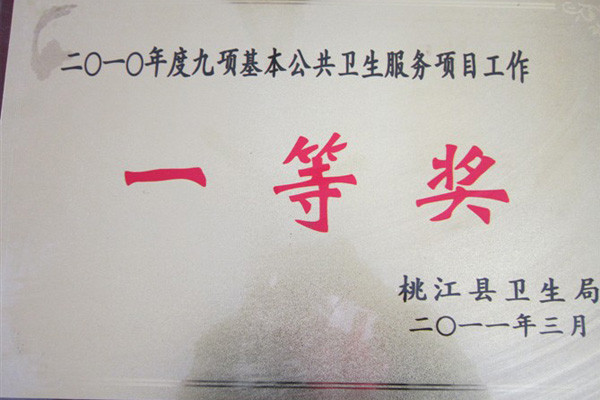 二〇一〇年度九项基本公共卫生服务项目工作
一等奖
桃江县卫生局
二〇一一年三月